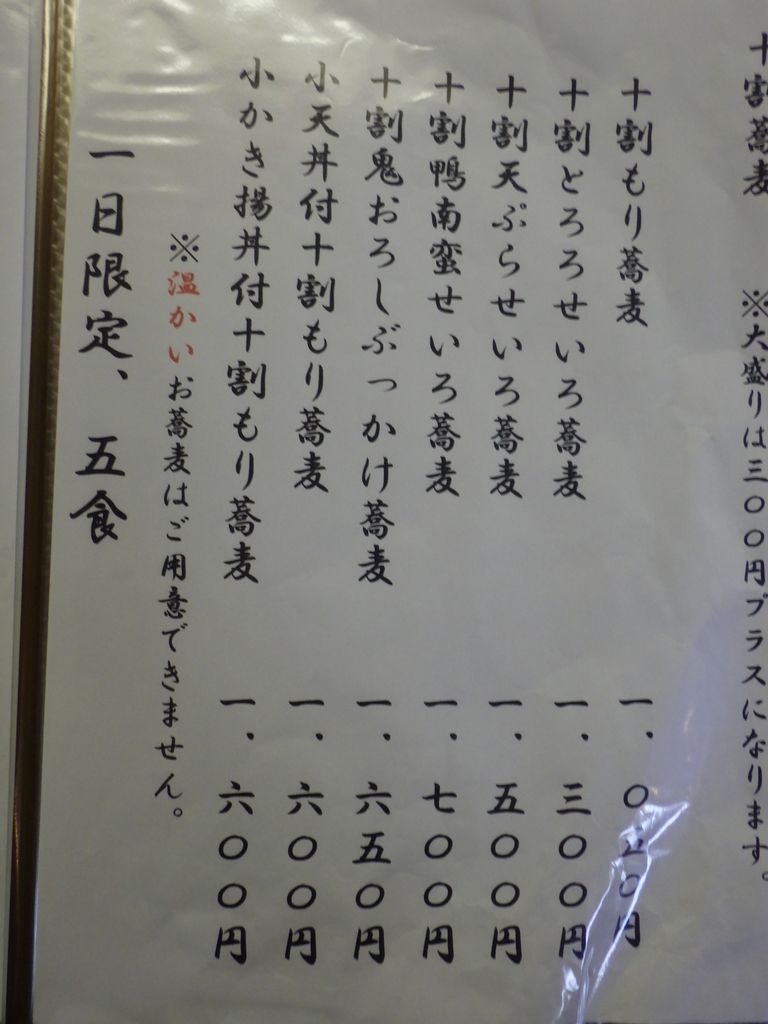 十割蕎麦　※大盛りは三〇〇円プラスになります。
十割もり蕎麦　一、〇五〇円
十割とろろせいろ蕎麦　一、三〇〇円
十割天ぷらせいろ蕎麦　一、五〇〇円
十割鴨南蛮せいろ蕎麦　一、七〇〇円
十割鬼おろしぶっかけ蕎麦　一、六五〇円
小天丼付十割もり蕎麦　一、六〇〇円
小かき揚丼付十割もり蕎麦　一、六〇〇円
※温かいお蕎麦はご用意できません。
一日限定、五食